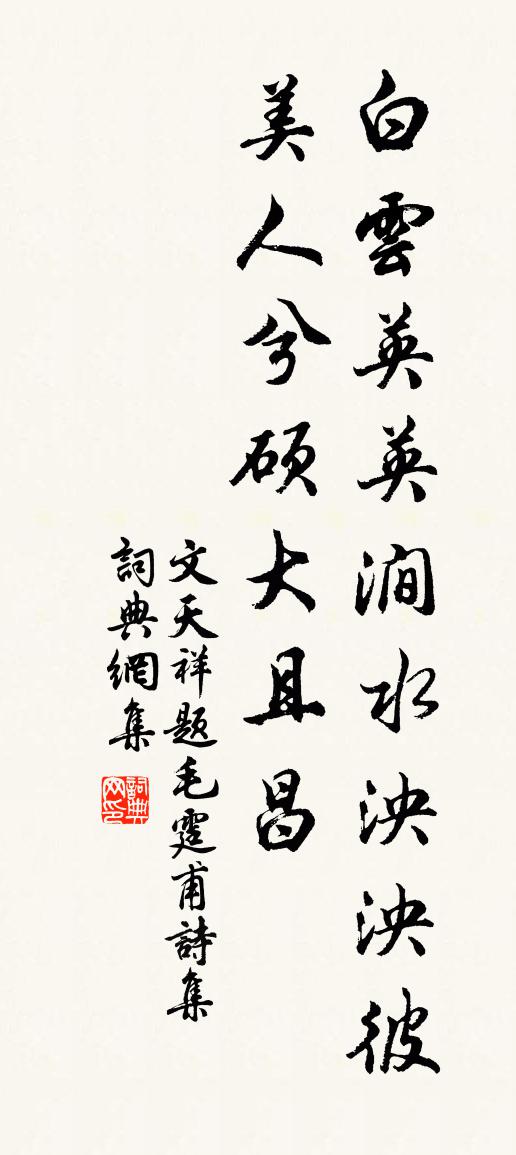 白雲英英澗水泱泱彼
美人兮碩大且昌
文天祥題毛霆甫詩集
詞典網集
詞典网印